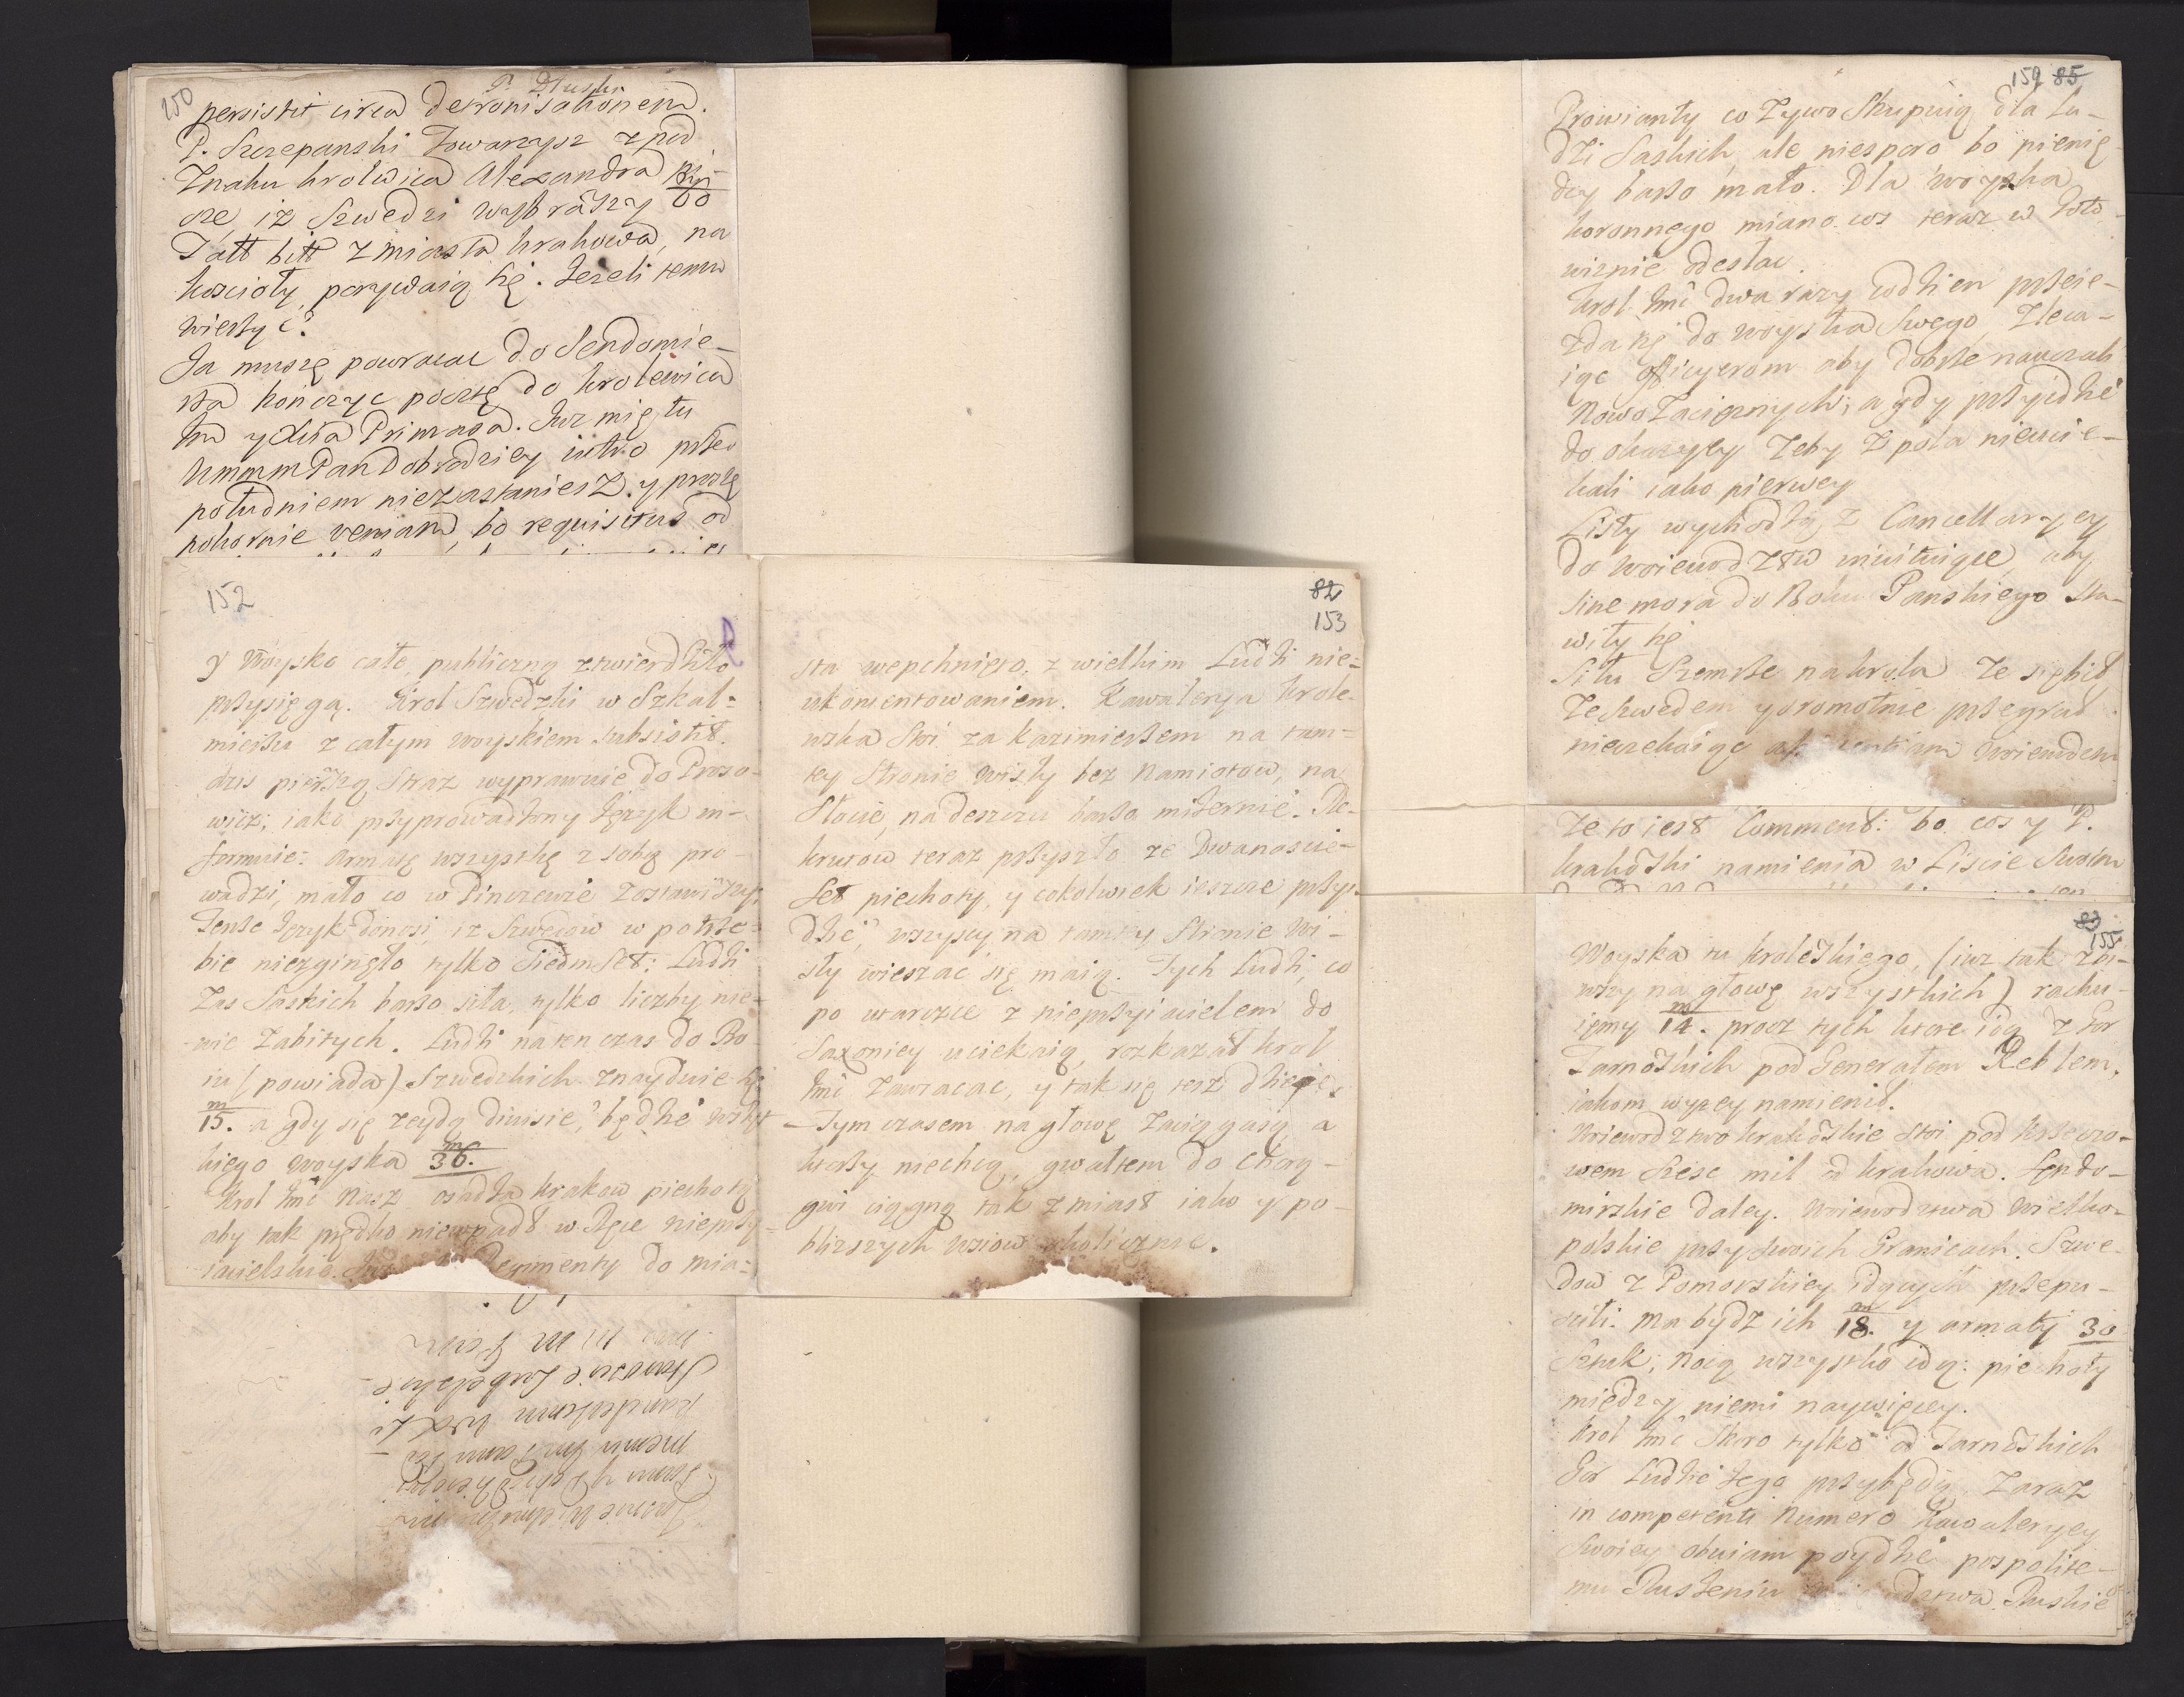 150
P. Dluski
persistit circa detronisationem.
P. Szczepanski Towarzysz z pod
Znaku krolewica Alexandra
sze, iz Szwedzi wybrawszy 60
Tall bitt z miasta krakowa, na
koscioly porywaią się. Jezeli temu
wierzyć?
Ja muszę powracac do Sendomie-
rza kończyc pocztę do krolewica
Jmci y dla Primasa. Juz mię tu
WmmmPan Dobrodziey iutro przed
południem niezastaniesz, y proszę
pokornie veniam, bo requisitus od
152
y Woysko całe, publiczną ztwierdziło
przysięgą. Krol Szwedzki w Szkal=
mierzu z całym woyskiem subsistit.
dzis pierszą Straz wyprawuie do Proszo-
wicz; iako przyprowadzony Język in-
formuie: Armatę wszystkę z sobą pro-
wadzi, mało co w Pinczowie zostawiwszy,
Tenze Język donosi, iz Szwedow w potrze=
bie niezginęło tylko Siedm Set: Ludzi
Zas Saskich barzo siła, tylko liczby nie=
wie Zabitych. Ludzi na ten czas do Bo
iu (powiada) Szwedzkich znayduie się
m/15. a gdy się zeydą diuisie, będzie wszyst
kiego woyska m/36.
Krol Jmć Nasz osadza krakow piechotą
aby tak prędko niewpadł w Ręce nieprzy=
iacielskie. Regimenty do mia=
82
153
sta wepchnięto, z wielkim Ludzi nie=
ukontentowaniem. Kawalerya krole-
wska Stoi za kazimierzem na tam=
tey Stronie Wisły bez Namiotow, na
Słocie, na deszczu barzo mizernie. Re-
krutow teraz przyszło ze Dwanascie=
Set piechoty, y cokolwiek ieszcze przyi
dzie, wszyscy na tamtey Stronie Wi-
sły wieszac się maią. Tych Ludzi, co
po utarczce z nieprzyiacielem do
Saxoniey uciekaią, rozkazał krol
Jmć zawracac, y tak się tesz dzieie.
Tym czasem na głowę Zaciągaią, a
ktorzy niechcą, gwałtem do Chorą-
gwi ciągną tak z miast iako y po-
blizszych wsiow okolicznie.
159 85
Prowianty co zywo Skupuią dla Lu-
dzi Saskich, ale niesporo bo pienię-
dzy barzo mało. Dla woyska
koronnego miano cos teraz w Goto-
wiznie odesłac.
Krol Jmć dwa razy codzien przeie-
zdza się do woyska Swego, Zleca-
iąc Officyerom aby dobrze nauczali
Nowo Zacięznych; a gdy przyidzie
do okazyey Zeby z pola nieucie-
kali iako pierwey
Listy wychodzą z Cancellaryey
do woiewodztw inuituiące aby
sine mora do Boku Panskiego sta-
wiły się
Siła Szemrze na krola Ze się bił
Ze Szwedem y sromotnie przegrał
nieczekaiąc woiewodztw
Ze to iest Comment: bo cos y P.
krakowski namienia w Liscie Swoim
83
155
Woyska tu krolewskiego, (iuz tak
wszy na głowę wszystkich) rachu-
iemy m/14. procz tych ktore idą z Gor
Tarnowskich pod Generałem Reblem,
iakom wyzey namienił.
Woiewodztwo krakowskie stoi pod
wem Szesc mil od krakowa. Sendo-
mirskie daley. Woiewodztwa Wielko-
polskie przy swoich Granicach. Szwe-
dow z Pomorskiey idących przepu-
scili: Ma bydz ich m/18. y armaty 30
Sztuk; nocą wszystko idą: piechoty
miedzy niemi naywięcey.
Krol Jmć skoro tylko od Tarnowskich
Gor Ludzie Jego przybędą, Zaraz
in competenti Numero kawaleryey
Swoiey obuiam poydzie pospolite-
mu Ruszeniu Ruskie